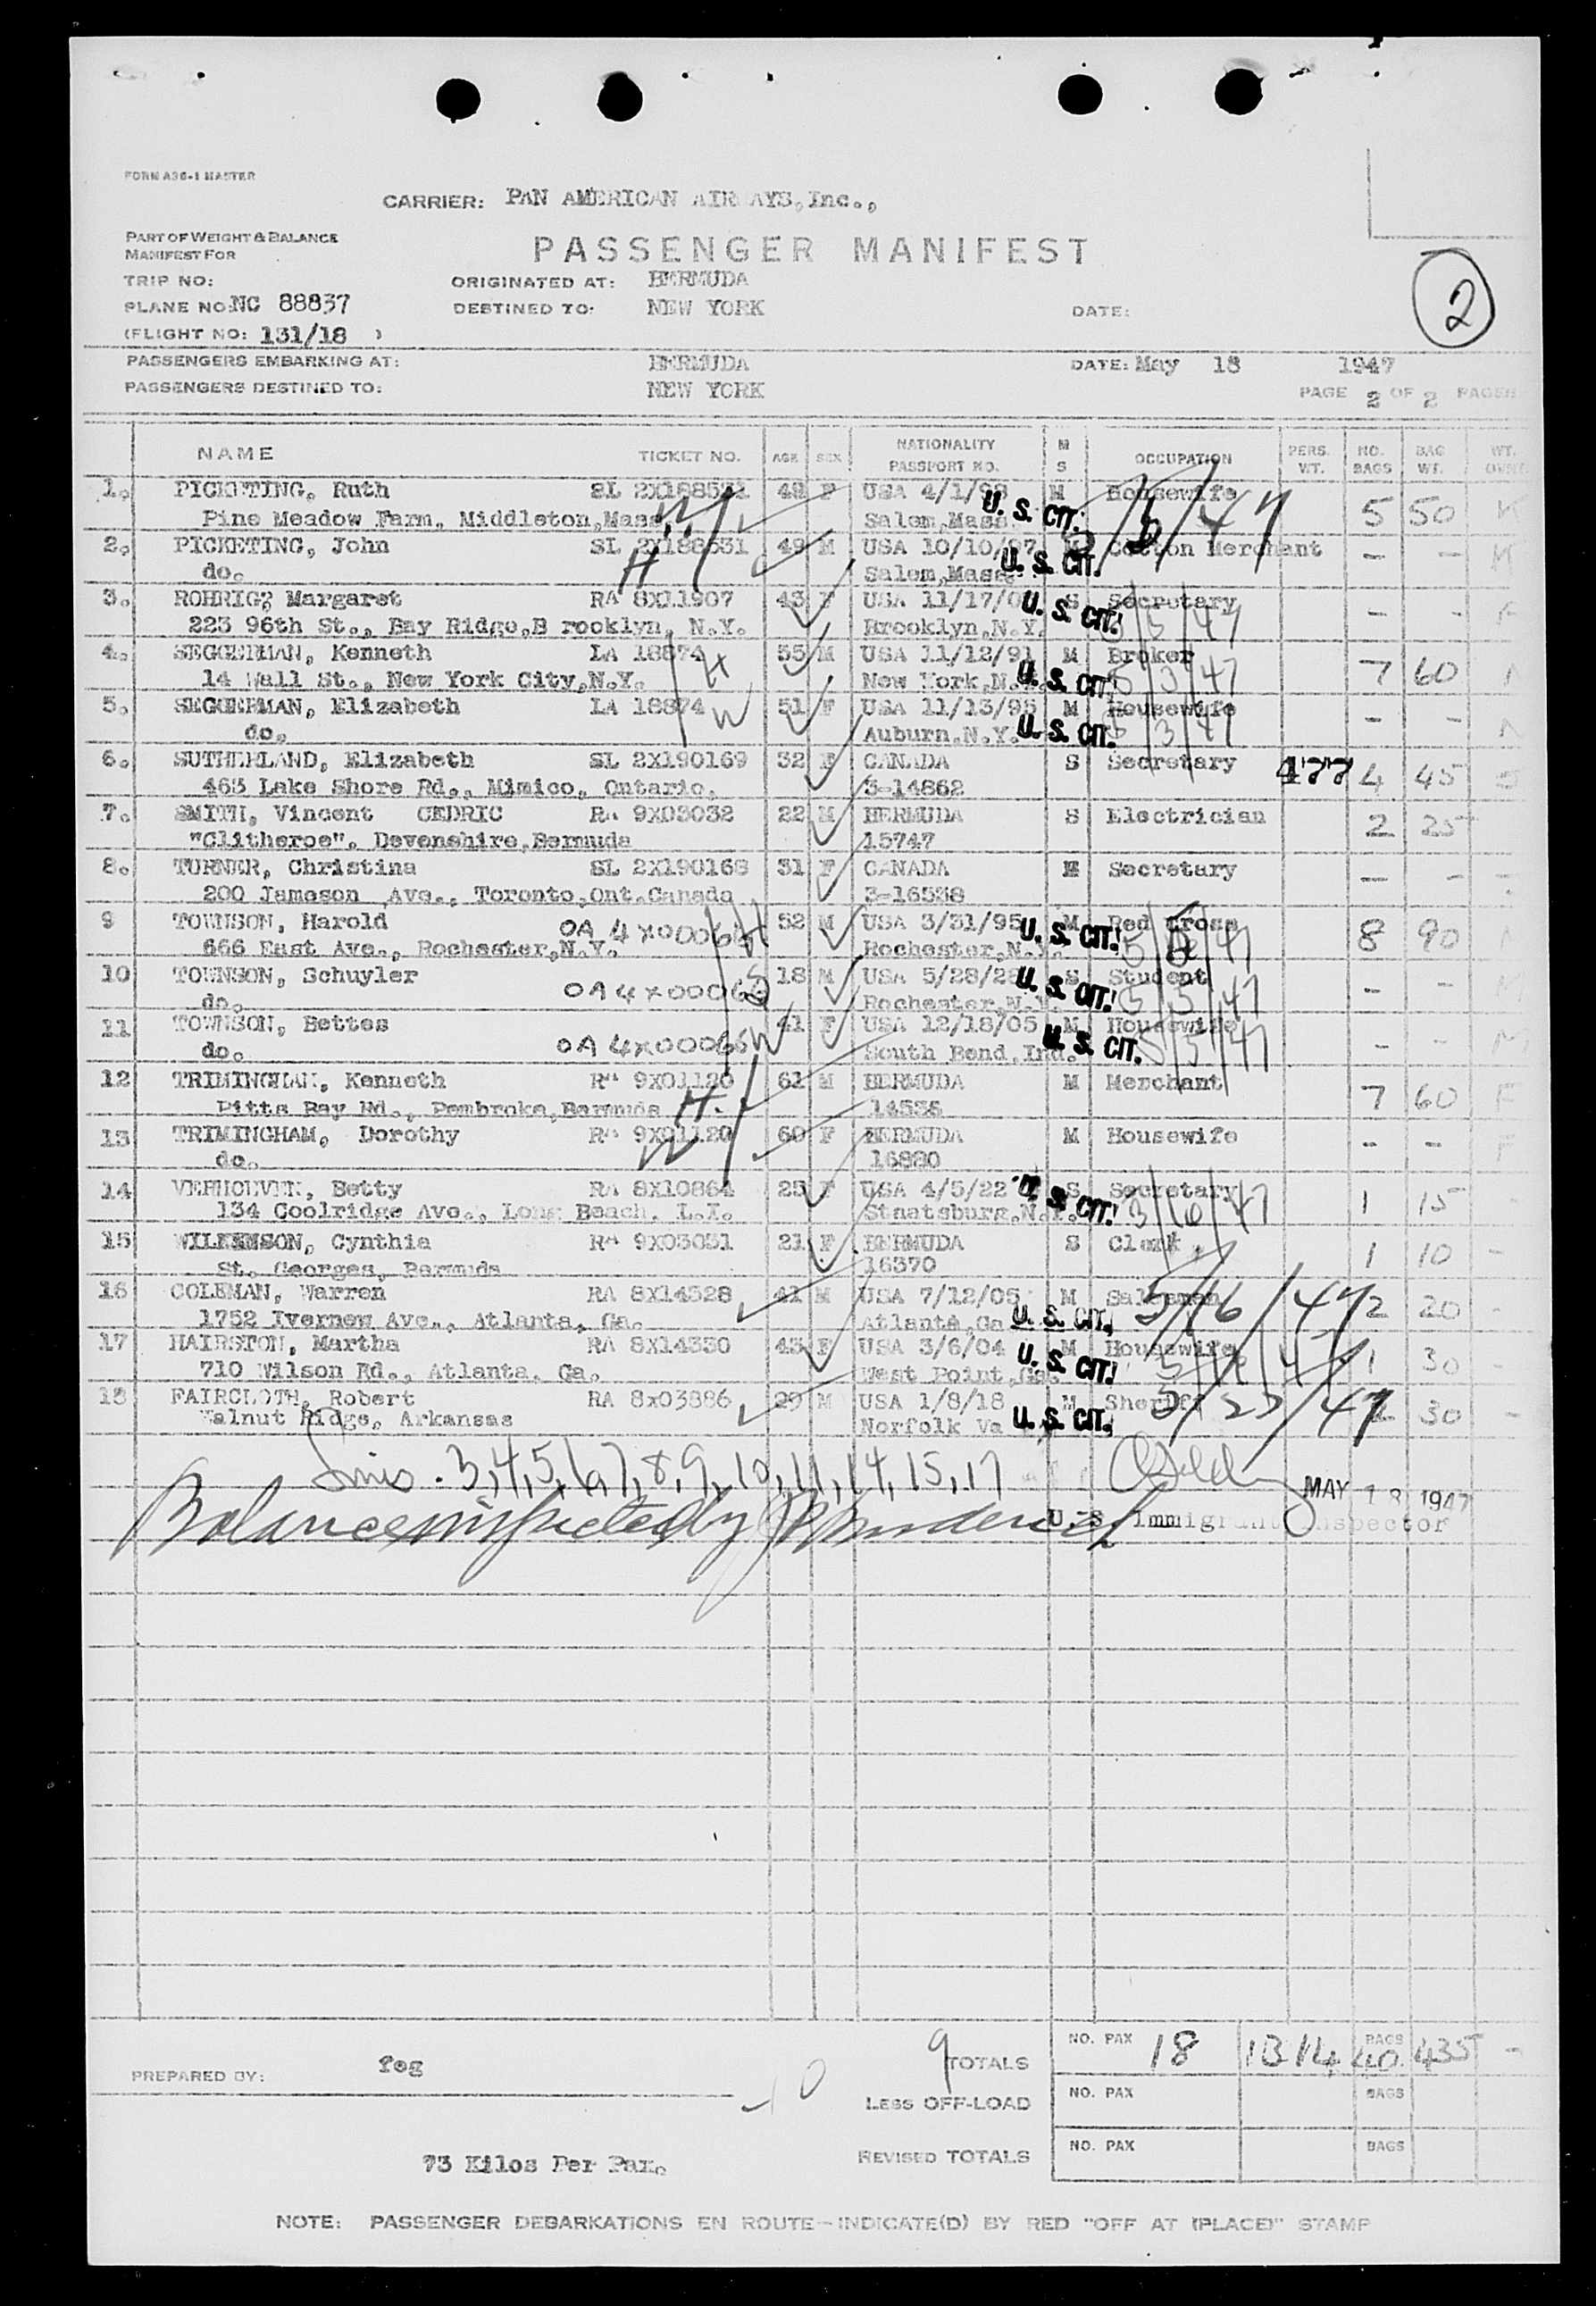 FORM A36-1 MASTER
CARRIER: PAN AMERICAN AIRWAYS, Inc.,
PART OF WEIGHT & BALANCE
MANIFEST FOR
PASSENGER MANIFEST
2
TRIP NO: ORIGINATED AT: BERMUDA
PLANE NO: NC 88837 DESTINED TO: NEW YORK DATE:
(FLIGHT NO: 131/18 )
PASSENGERS EMBARKING AT: BERMUDA DATE: May 18 1947
PASSENGERS DESTINED TO: NEW YORK PAGE 2 OF 2 PAGES
NAME TICKET NO. AGE SEX NATIONALITY PASSPORT NO. M S OCCUPATION PERS. WT. NO. BAGS BAG WT. WT.
1. PICKETING, Ruth SL 49 F USA 4/1/98 M Housewife 5 50 K
Pine Meadow Farm, Middleton, Mass. W Salem, Mass. U. S. CIT.
2. PICKETING, John SL 2X188531 49 M USA 10/10/97 Cotton Merchant - - M
do. H Salem, Mass. U. S. CIT.
3. ROHRIG, Margaret RA 8X11907 43 F USA 11/17/0 S Secretary - -
223 96th St., Bay Ridge, B rooklyn, N.Y. Brooklyn, N.Y. U. S. CIT. 5/5/47
4. SEGGERMAN, Kenneth LA 18874 55 M USA 11/12/91 M Broker 7 60
14 Wall St., New York City, N.Y. H New York, N.Y. U. S. CIT. 5/3/47
5. SEGGERMAN, Elizabeth LA 18874 51 F USA 11/13/95 M Housewife - -
do. W Auburn, N.Y. U. S. CIT. 5/3/47
6. SUTHERLAND, Elizabeth SL 2X190169 32 F CANADA S Secretary 477 4 45
463 Lake Shore Rd., Mimico, Ontario. 3-14862
7. SMITH, Vincent CEDRIC RA 9X03032 22 M BERMUDA S Electrician 2 25
"Clitheroe", Devonshire, Bermuda 15747
8. TURNER, Christina SL 2X190168 31 F CANADA Secretary - -
200 Jameson Ave., Toronto, Ont. Canada 3-16538
9 TOWNSON, Harold OA 4X00065 H 52 M USA 3/31/95 M Red Cross 8 90
666 East Ave., Rochester, N.Y. Rochester, N.Y. U. S. CIT.
10 TOWNSON, Schuyler OA 4X00065 18 M USA 5/28/28 S Student - -
do. Rochester, N.Y. U. S. CIT. 5/5/47
11 TOWNSON, Bettes OA 4X00065 W 41 F USA 12/18/05 M Housewife - -
do. South Bend, Ind. U. S. CIT. 5/5/47
12 TRIMINGHAM, Kenneth RA 9X01120 61 M BERMUDA M Merchant 7 60 F
Pitts Bay Rd., Pembroke, Bermuda H. 14535
13 TRIMINGHAM, Dorothy RA 9X01120 60 F BERMUDA M Housewife - - F
do. W 16820
14 VERHOEVEN, Betty RA 8X10864 25 F USA 4/5/22 S Secretary 1 15
134 Coolridge Ave., Long Beach, L.I. Staatsburg, N.Y. U. S. CIT.
15 WILKINSON, Cynthia RA 9X03031 21 F BERMUDA S Clerk 1 10 -
St. Georges, Bermuda 16370
16 COLEMAN, Warren RA 8X14328 41 M USA 7/12/05 M Salesman 5/16/47 2 20 -
1752 Ivernew Ave., Atlanta, Ga. Atlanta, Ga U. S. CIT.
17 HAIRSTON, Martha RA 8X14330 43 F USA 3/6/04 M Housewife 1 30 -
710 Wilson Rd., Atlanta. Ga. West Point, Ga. U. S. CIT.
18 FAIRCLOTH, Robert RA 8x03886 29 M USA 1/8/18 M Sheriff 30 -
Walnut Ridge, Arkansas Norfolk Va U. S. CIT.
3, 4, 5, 6, 7, 8, 9, 10, 11, 14, 15, 17
MAY 18 1947
Balance inspected by
U. S. Immigrant Inspector
9 TOTALS NO. PAX 18 1314 BAGS 40 435 -
PREPARED BY: feg
0
LESS OFF-LOAD NO. PAX BAGS
73 Kilos Per Pax. REVISED TOTALS NO. PAX BAGS
NOTE: PASSENGER DEBARKATIONS EN ROUTE—INDICATE(D) BY RED "OFF AT (PLACE)" STAMP